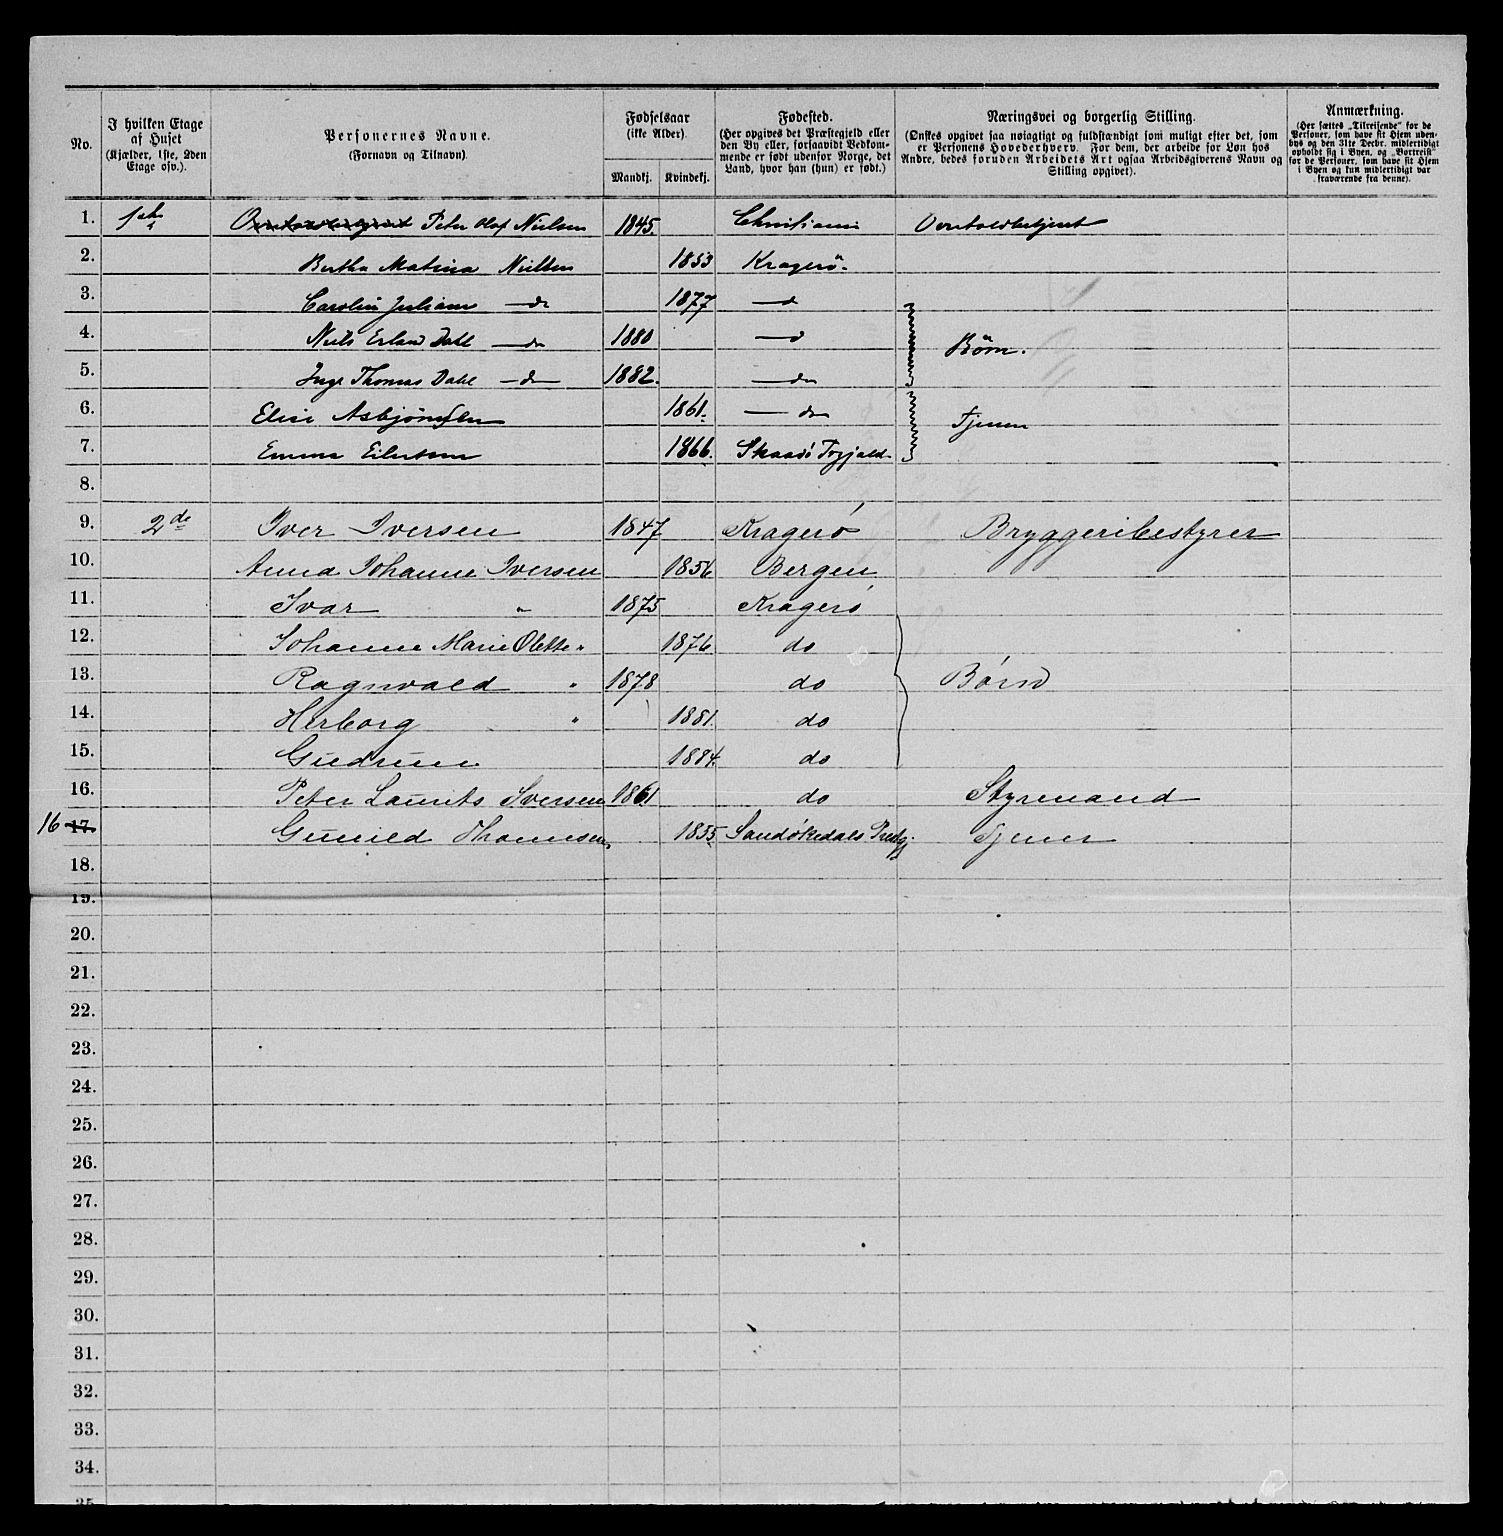 No.
I hvilken Etage
af Huset
(Kjælder, 1ste, 2den
Etage osv.).
Personernes Navne.
(Fornavn og Tilnavn).
Fødselsaar
(ikke Alder).
Mandkj. Kvindekj.
Fødested.
(Her opgives det Præstegjeld eller
den By eller, forsaavidt Vedkom-
mende er født udenfor Norge, det
Land, hvor han (hun) er født.)
Næringsvei og borgerlig Stilling.
(Ønskes opgivet saa nøiagtigt og fuldstændigt som muligt efter det, som
er Personens Hovederhverv. For dem, der arbeide for Løn hos
Andre, bedes foruden Arbeidets Art ogsaa Arbeidsgiverens Navn og
Stilling opgivet).
Anmærkning.
(Her sættes „Tilreisende“ for de
Personer, som have sit Hjem uden-
bys og den 31te Decbr. midlertidigt
opholdt sig i Byen, og „Bortreist“
for de Personer, som have sit Hjem
i Byen og kun midlertidigt var
fraværende fra denne).
1. Peter Olaf Nielsen 1845. Christiania Overtoldbetjent
2. Bertha Matina Nielsen 1853 Kragerö.
3. Caroline Juliane — do 1877 — do
4. Niels Erland Dahl — do 1880 — do Börn.
5. Inge Thomas Dahl — do — 1882. — do
6. Elise Asbjönsen 1861. — do Tjener
7. Emma Eilertsen 1866. Skaadö
8.
9. 2de Iver Iversen 1847 Kragerø Bryggeribestyrer
10. Anna Johanne Iversen 1856 Bergen
11. Ivar " 1875 Kragerø
12. Johanne Marie Olette " 1876 do
13. Ragnvald " 1878 do Børn
14. Herborg " 1881. do
15. Gudrun 1884. do
16. Peter Laurits Iversen 1861 do Styrmand
16 17. Gunild Thomsen 1855. Sandøkedals Prestgj. Tjener
18.
19.
20.
21.
22.
23.
24.
25.
26.
27.
28.
29.
30.
31.
32.
33.
34.
35.